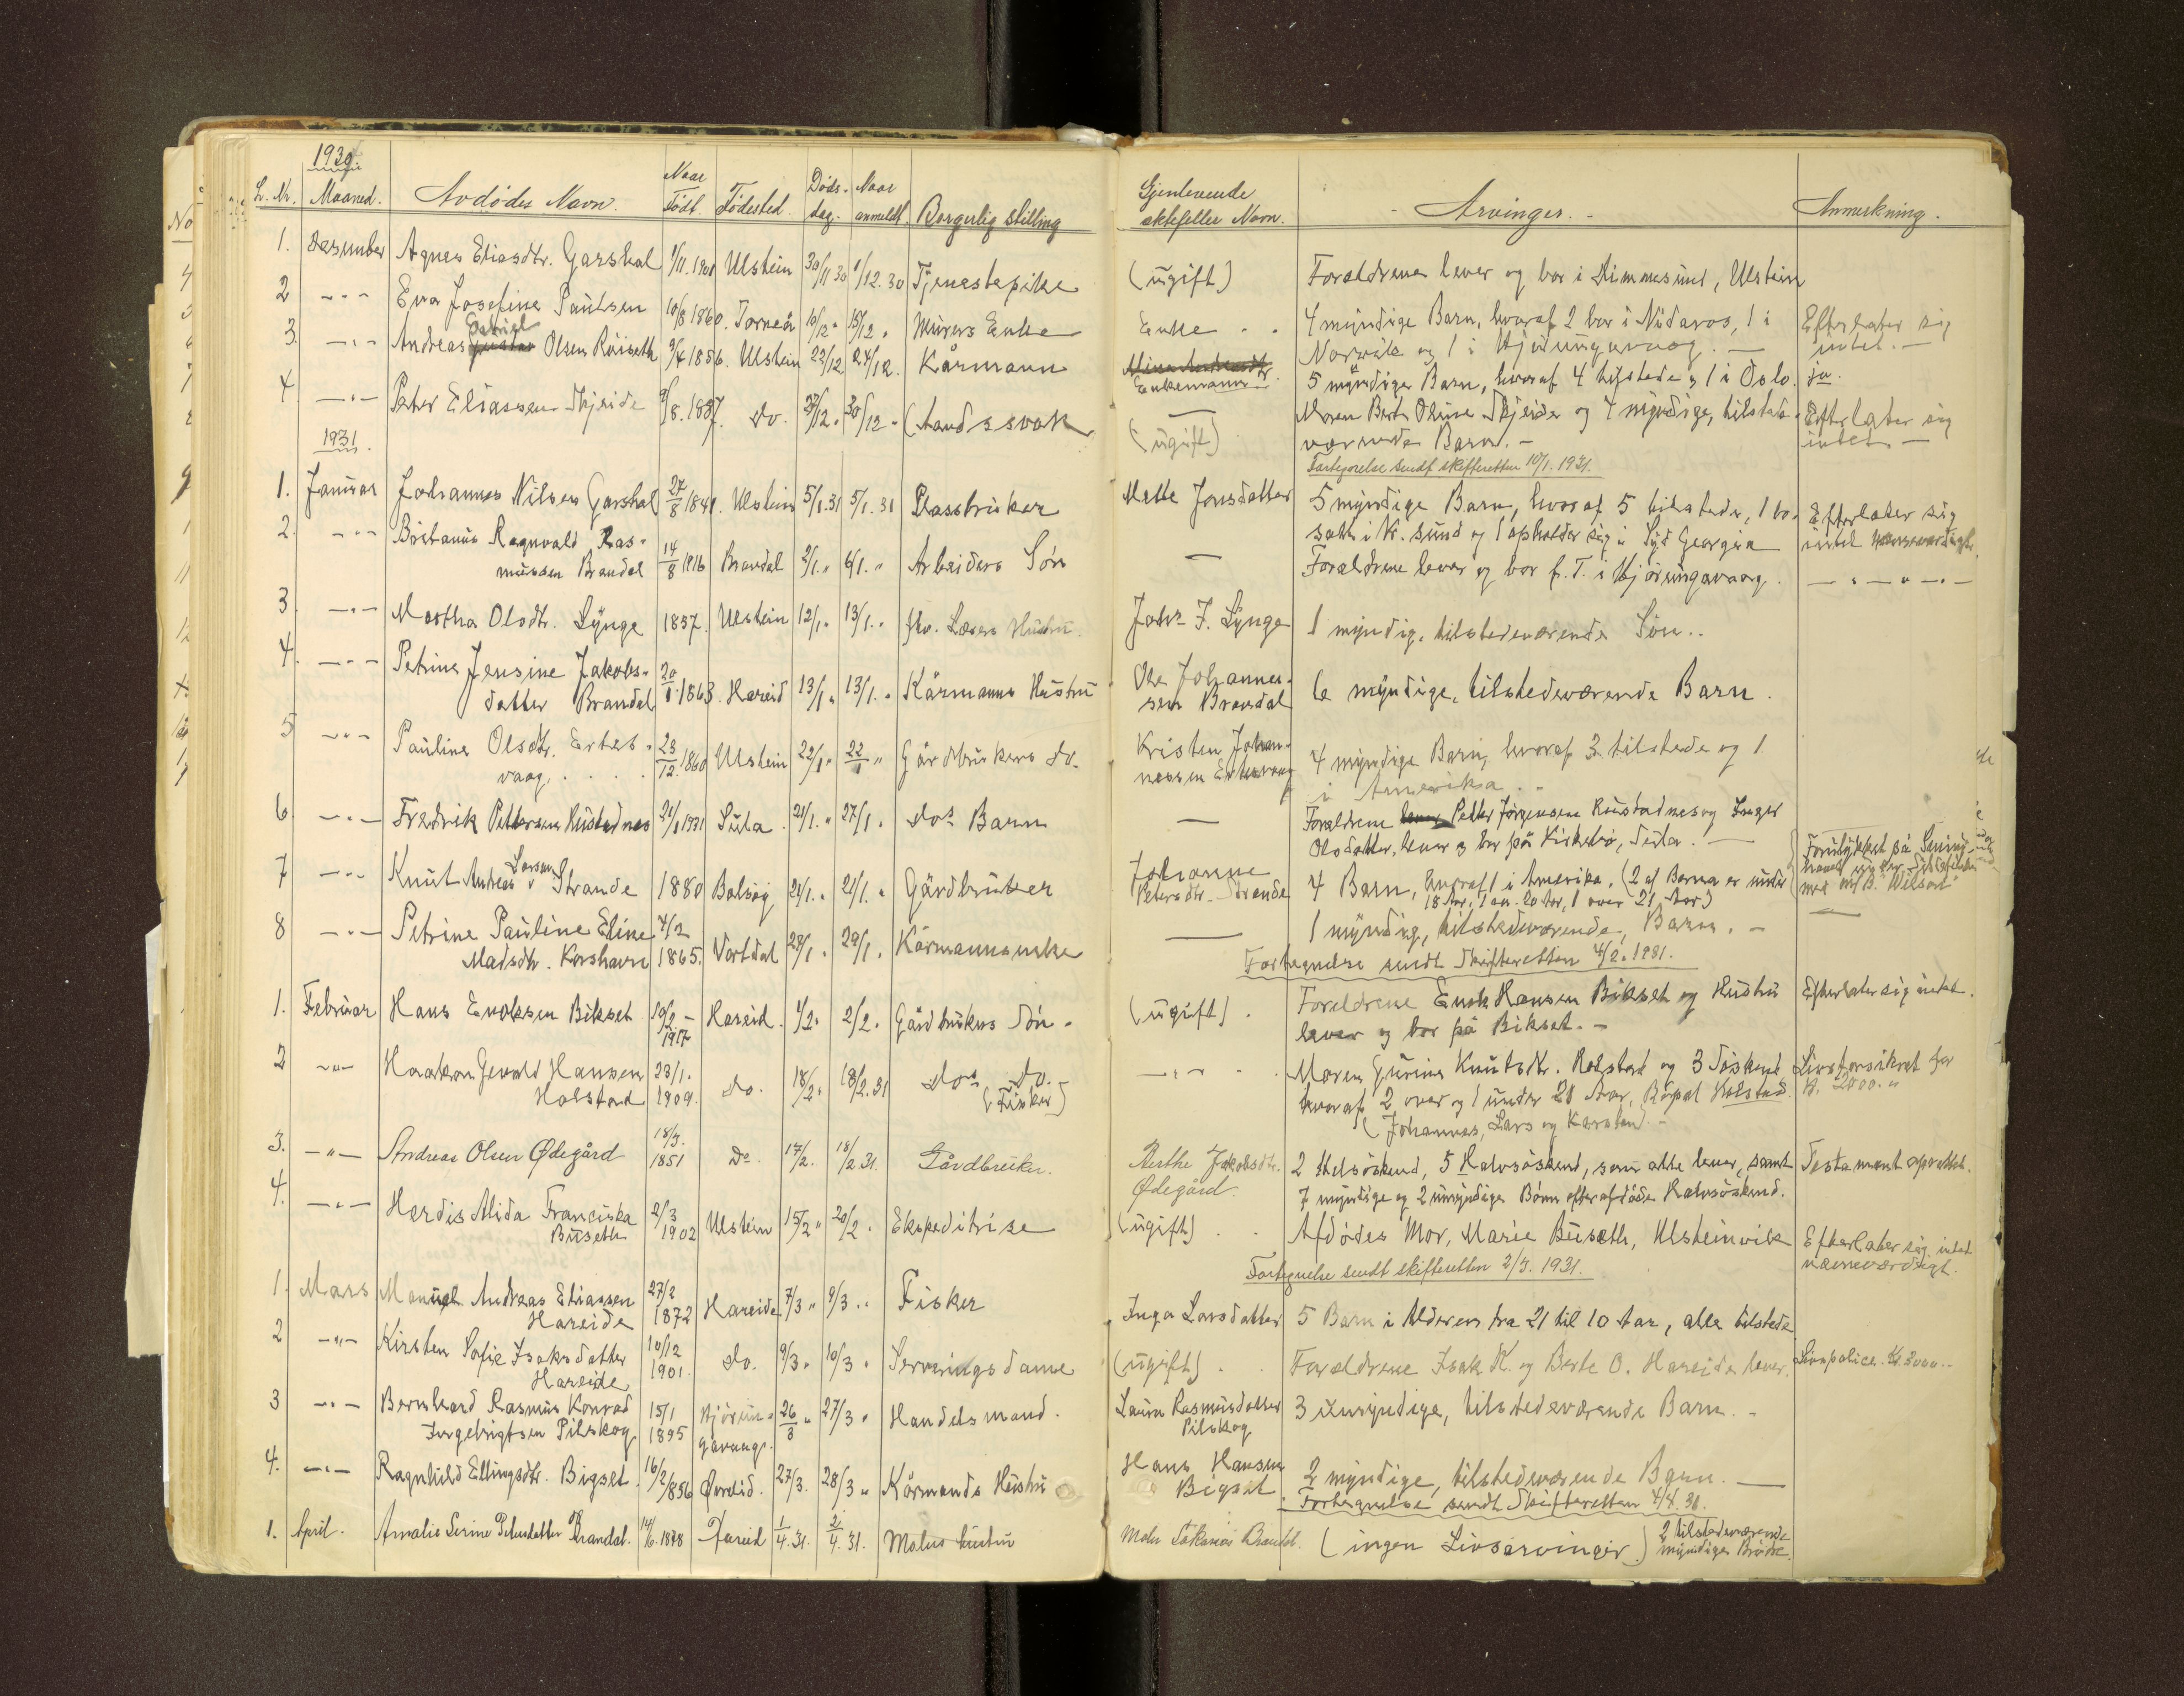 1930.
L. Nr. Maaned. Avdødes Navn. Naar Født. Fødested. Døds-dag. Naar anmeldt. Borgerlig stilling Gjenlevende ektefelles Navn. Arvinger. Anmerkning.
1. Desember Agnes Eliasdtr. Garshol 1/11.1901 Ulstein 30/11 30 1/12.30 Tjenestepike (ugift) Foreldrene lever og bor i Dimmesund, Ulstein
2 -"- Eva Josefine Paulsen 10/8 1860. Torneå 10/12 " 15/12 " Murers Enke Enke 4 myndige Barn, hvoraf 2 bor i Nidaros, 1 i Efterlater sig
Narvik og 1 i Hjørungavaag. intet.
3. -"- Andreas Gustav Olsen Röiseth 9/4 1856. Ulstein 23/12 24/12. Kårmann Enkemann 5 myndige Barn, hvoraf 4 tilstede og 1 i Oslo. ja.
4 -"- Peter Eliassen Skjeide /8.1887. do. 27/12. 30/12 " (Aandssvak (ugift) Moren Berte Oline Skjeide og 4 myndige, tilstede- Efterlater sig
værende Barn. - intet -
1931. Fortegnelse sendt skifteretten 10/1. 1931.
1. Januar Johannes Nilsen Garshol 27/8 1841. Ulstein 5/1.31 5/1.31 Plassbruker Mette Jonsdatter 5 myndige Barn, hvoraf 5 tilstede, 1 bo- Efterlater sig
satt i Kr. sund og 1 opholder sig i Syd Georgia intet nævneværdigt.
2. -"- Britanus Ragnvald Ras-
mussen Brandal 14/8 1916 Brandal 2/1. " 6/1. " Arbeiders Søn — Foreldrene lever og bor f. T. i Hjørungavaag. - " - " - " -
3 -"- Martha Olsdtr. Lynge 1857. Ulstein 12/1. 13/1. " Hustru Johs J. Lynge 1 myndig, tilstedeværende Søn..
4. -"- Petrine Jensine Jakobs-
datter Brandal 20/1. 1863. Hareid 13/1 " 13/1. " Kårmanns Hustru Ole Johannes-
sen Brandal 6 myndige, tilstedeværende Barn.
5 -"- Pauline Olsdtr. Ertes-
vaag. 23/12. 1860 Ulstein 22/1 " 22/1 " Gårdbrukers do. Kristen Johan-
nessen Ertesvaag 4 myndige Barn, hvoraf 3 tilstede og 1
i Amerika..
6 -"- Fredrik Pettersen Rustadnes 21/1 1931 Sula 21/1. " 27/1. do's Barn — Foreldrene lever Petter Jørgensen Rustadnes og Inger
Olsdatter, lever og bor på Kirkebø, Sula. —
7 -"- Knut Andreas Larsen Strande 1880 Balsøy 21/1. " 21/1. " Gårdbruker Johanne
Petersdtr. Strande 4 Barn, hvoraf 1 i Amerika. (2 af Barna er under
18 Aar, 1 20 Aar, 1 over 21 Aar) Forulykket på
med m/B. "Wilson"
8 -"- Petrine Pauline Eline
Madsdtr. Korshavn 4/2 1865. Vartdal 28/1. 29/1. Kårmannsenke — 1 myndig, tilstedeværende, Barn. - —
Fortegnelse sendt Skifteretten 4/2. 1931.
1. Februar Hans Enoksen Bikset 10/2 - 1917 Hareid. 1/2. 2/2. Gårdbrukers Søn. (ugift). Foreldrene Enok Hansen Bikset og Hustru Efterlater sig intet.
lever og bor på Bikset. -
2 -"- Haakon Gevald Hansen
Holstad 23/1. 1909. do. 18/2. 18/2.31 do's do. (Fisker) -"- Moren Gurine Knutsdtr. Holstad og 3 Søskend Livsforsikret for
hvoraf 2 over og 1 under 21 Aar, Holstad. Kr. 2000."
(Johannes, Lars og Karsten) -
3. -"- Andreas Olsen Ødegård 18/3. 1851 do. 17/2. 18/2.31. Gårdbruker. Berthe Jakobsdtr.
Ødegård. 2 Helsøskend, 5 Halvsøskend, som alle lever, samt Testament oprettet.
7 myndige og 2 umyndige Børn efter afdøde Halvsøskend.
4. -"- Herdis Alida Franciska
Buseth 2/3 1902 Ulstein 15/2 " 20/2. Ekspeditrise (ugift) Afdødes Mor, Marie Buseth, Ulsteinvik Efterlater sig intet
nævneværdigt.
Fortegnelse sendt skifteretten 2/3. 1931.
1. Mars Manuel Andreas Eliassen
Hareide 27/2 1872 Hareide 7/3 " 9/3 .. Fisker Inga Larsdatter 5 Barn i Alderen fra 21 til 10 Aar, alle tilstede
2 -"- Kirsten Sofie Isaksdatter
Hareide 10/12 1901. do. 9/3. 10/3. Serveringsdame (ugift). Foreldrene Isak K. og Berte O. Hareide lever. Livspolice Kr. 3000.-
3 -"- Bernhard Rasmus Konrad
Ingebrigtsen Pilskog 15/1 1895 Hjørun-
gavaag. 26/3 " 27/3. Handelsmand. Laura Rasmusdatter
Pilskog 3 umyndige, tilstedeværende Barn. -
4. -"- Ragnhild Ellingsdtr. Bigset. 16/2/1856 Ørdid. 27/3. 28/3 " Kårmands Hustru Hans Hansen
Bigset. 2 myndige, tilstedeværende Barn. —
Fortegnelse sendt Skifteretten 4/4. 31.
1. April. Amalie Serine Petersdatter Brandal. 14/6.1878 Hareid 1/4.31. 2/4.31. Malers hustru Maler Sakarias Brandal. (ingen Livsarvinger.) 2 tilstedeværende
myndige Brødre.